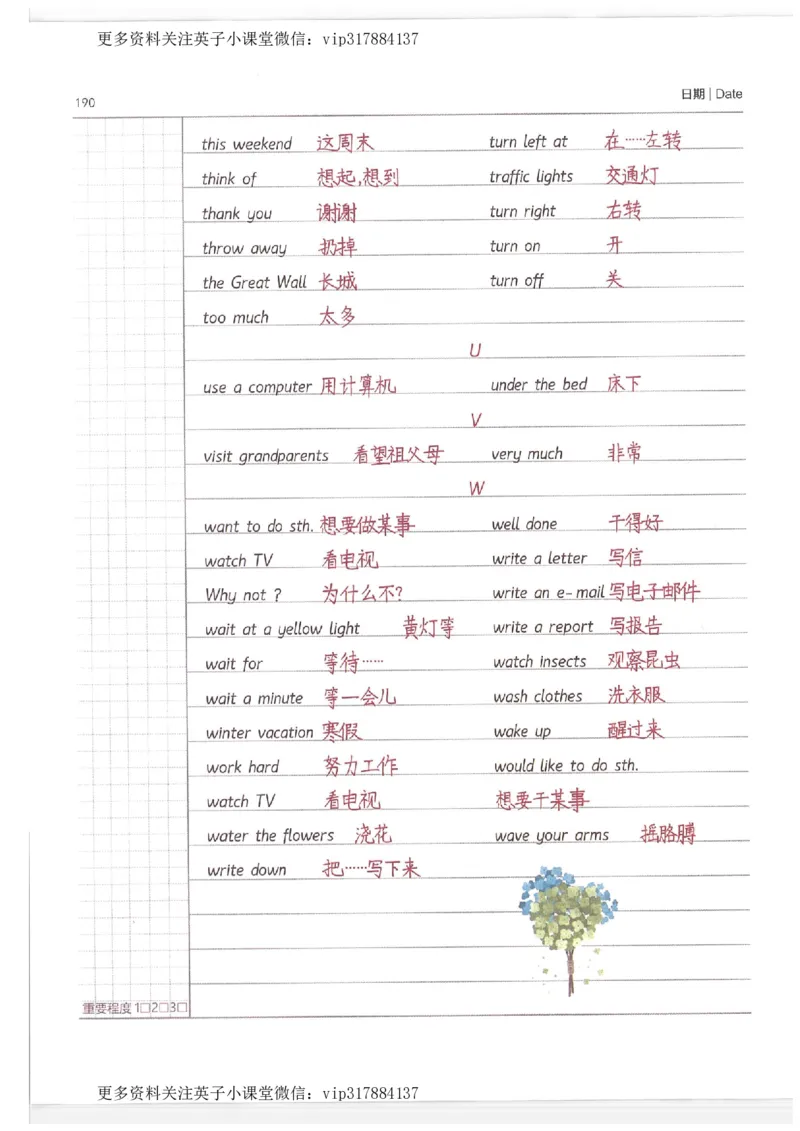 更多资料关注英子小课堂微信：vip317884137
190 日期 | Date
this weekend 这周末 turn left at 在……左转
think of 想起,想到 traffic lights 交通灯
thank you 谢谢 turn right 右转
throw away 扔掉 turn on 开
the Great Wall 长城 turn off 关
too much 太多
U
use a computer 用计算机 under the bed 床下
V
visit grandparents 看望祖父母 very much 非常
W
want to do sth. 想要做某事 well done 干得好
watch TV 看电视 write a letter 写信
Why not ? 为什么不? write an e-mail 写电子邮件
wait at a yellow light 黄灯等 write a report 写报告
wait for 等待…… watch insects 观察昆虫
wait a minute 等一会儿 wash clothes 洗衣服
winter vacation 寒假 wake up 醒过来
work hard 努力工作 would like to do sth.
watch TV 看电视 想要干某事
water the flowers 浇花 wave your arms 摇胳膊
write down 把……写下来
重要程度 1□2□3□
更多资料关注英子小课堂微信：vip317884137